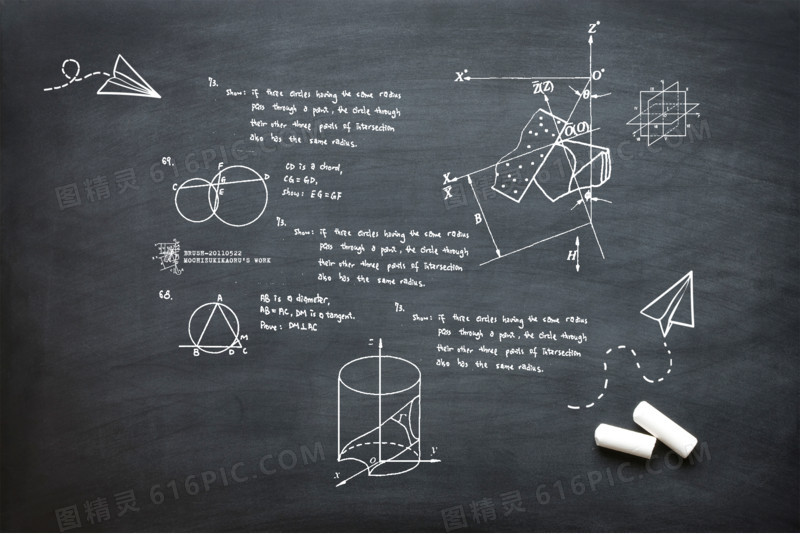 73.
Show: if three circles having the same radius
pass through a point, the circle through
their other three points of intersection
also has the same radius.
Z°
X°
O°
Z̄(Z)
θ
Ō(O)
X
X̄
B
H
69.
C
F
G
E
D
CD is a chord,
CG = GD,
Show: EG = GF
73.
Show: if three circles having the same radius
pass through a point, the circle through
their other three points of intersection
also has the same radius.
BRUSH-20110522
MOCHIZUKIKAORU'S WORK
68.
A
B
D
C
M
AB is a diameter,
AB = AC, DM is a tangent.
Prove: DM⊥AC
73.
Show: if three circles having the same radius
pass through a point, the circle through
their other three points of intersection
also has the same radius.
z
r
o
x
y
图精灵 616PIC.COM
图精灵 616PIC.COM
图精灵 616PIC.COM
图精灵 616PIC.COM